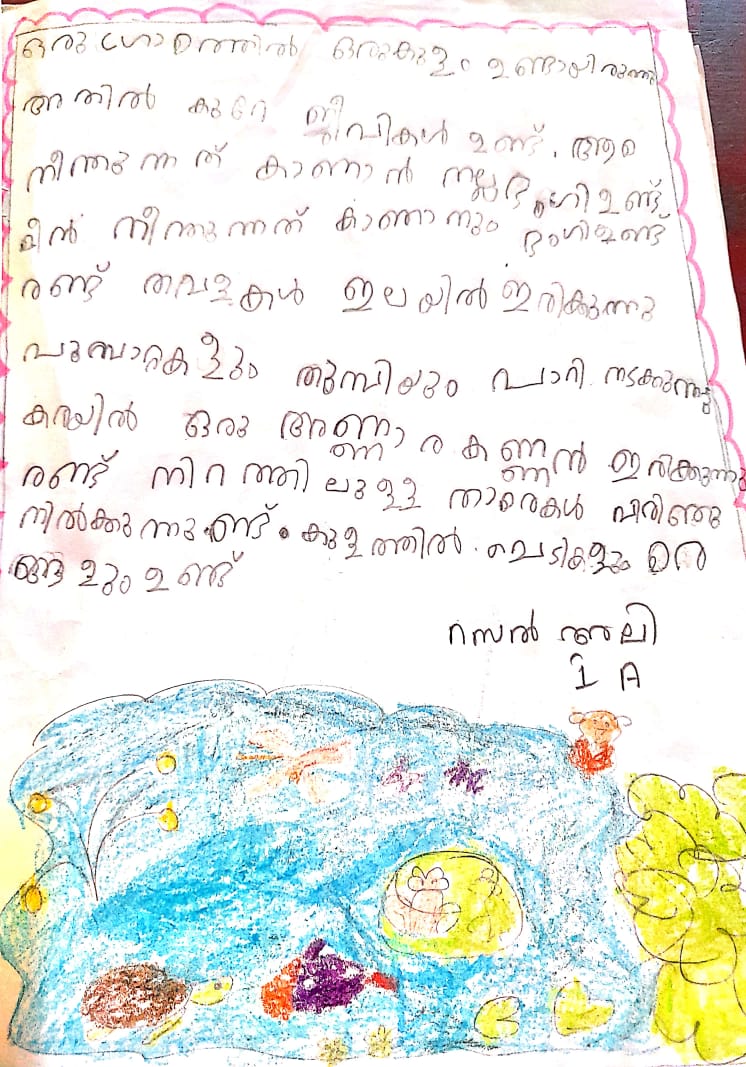 ഒരു ഗ്രാമത്തിൽ ഒരുകുളം ഉണ്ടായിരുന്നു
അതിൽ കുറേ ജീവികൾ ഉണ്ട്. ആമ
നീന്തുന്നത് കാണാൻ നല്ല ഭംഗിഉണ്ട്
മീൻ നീന്തുന്നത് കാണാനും ഭംഗിഉണ്ട്
രണ്ട് തവളകൾ ഇലയിൽ ഇരിക്കുന്നു
പൂമ്പാറ്റകളും തുമ്പിയും പാറി നടക്കുന്നു
കരയിൽ ഒരു അണ്ണാരകണ്ണൻ ഇരിക്കുന്നു
രണ്ട് നിറത്തിലുള്ള താമരകൾ വിരിഞ്ഞു
നിൽക്കുന്നുണ്ട്. കുളത്തിൽ ചെടികളും മര
ങ്ങളും ഉണ്ട്
റസൽ അലി
1 A